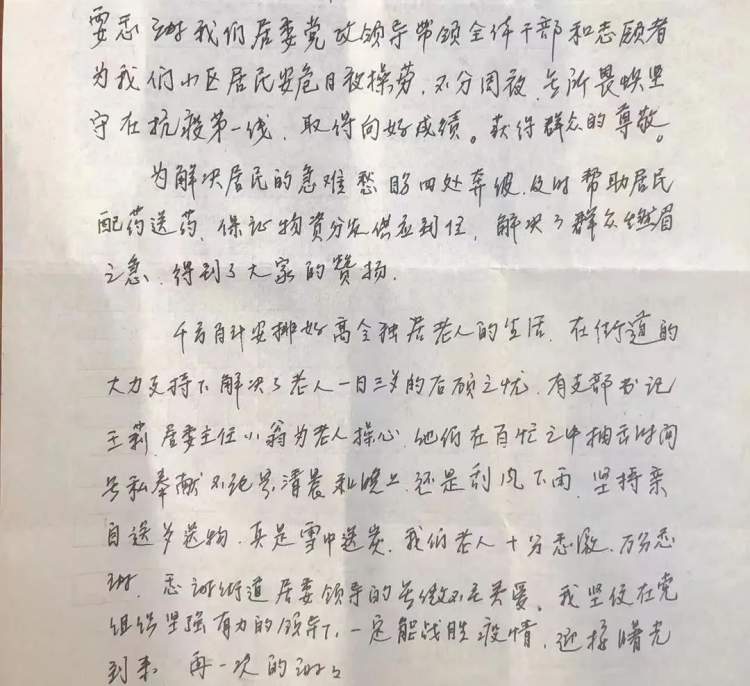 要感谢我们居委党政领导带领全体干部和志愿者
为我们小区居民安危日夜操劳，不分周夜，无所畏惧坚
守在抗疫第一线，取得向好成绩。获得群众的尊敬。
为解决居民的急难愁盼四处奔波，及时帮助居民
配药送药，保证物资分发供应到位，解决了群众燃眉
之急，得到了大家的赞扬．
千方百计安排好高令独居老人的生活，在街道的
大力支持下解决了老人一日三歺的后顾之忧，有支部书记
王莉，居委主任小翁为老人操心，她们在百忙之中抽出时间
无私奉献不论是清晨和晚上，还是刮风下雨，坚持亲
自送歺送物，真是雪中送炭，我们老人十分感激，万分感
谢，感谢街道居委领导的无微不至关爱，我坚信在党
组织坚强有力的领导下，一定能战胜疫情，迎接曙光
到来，再一次的谢谢